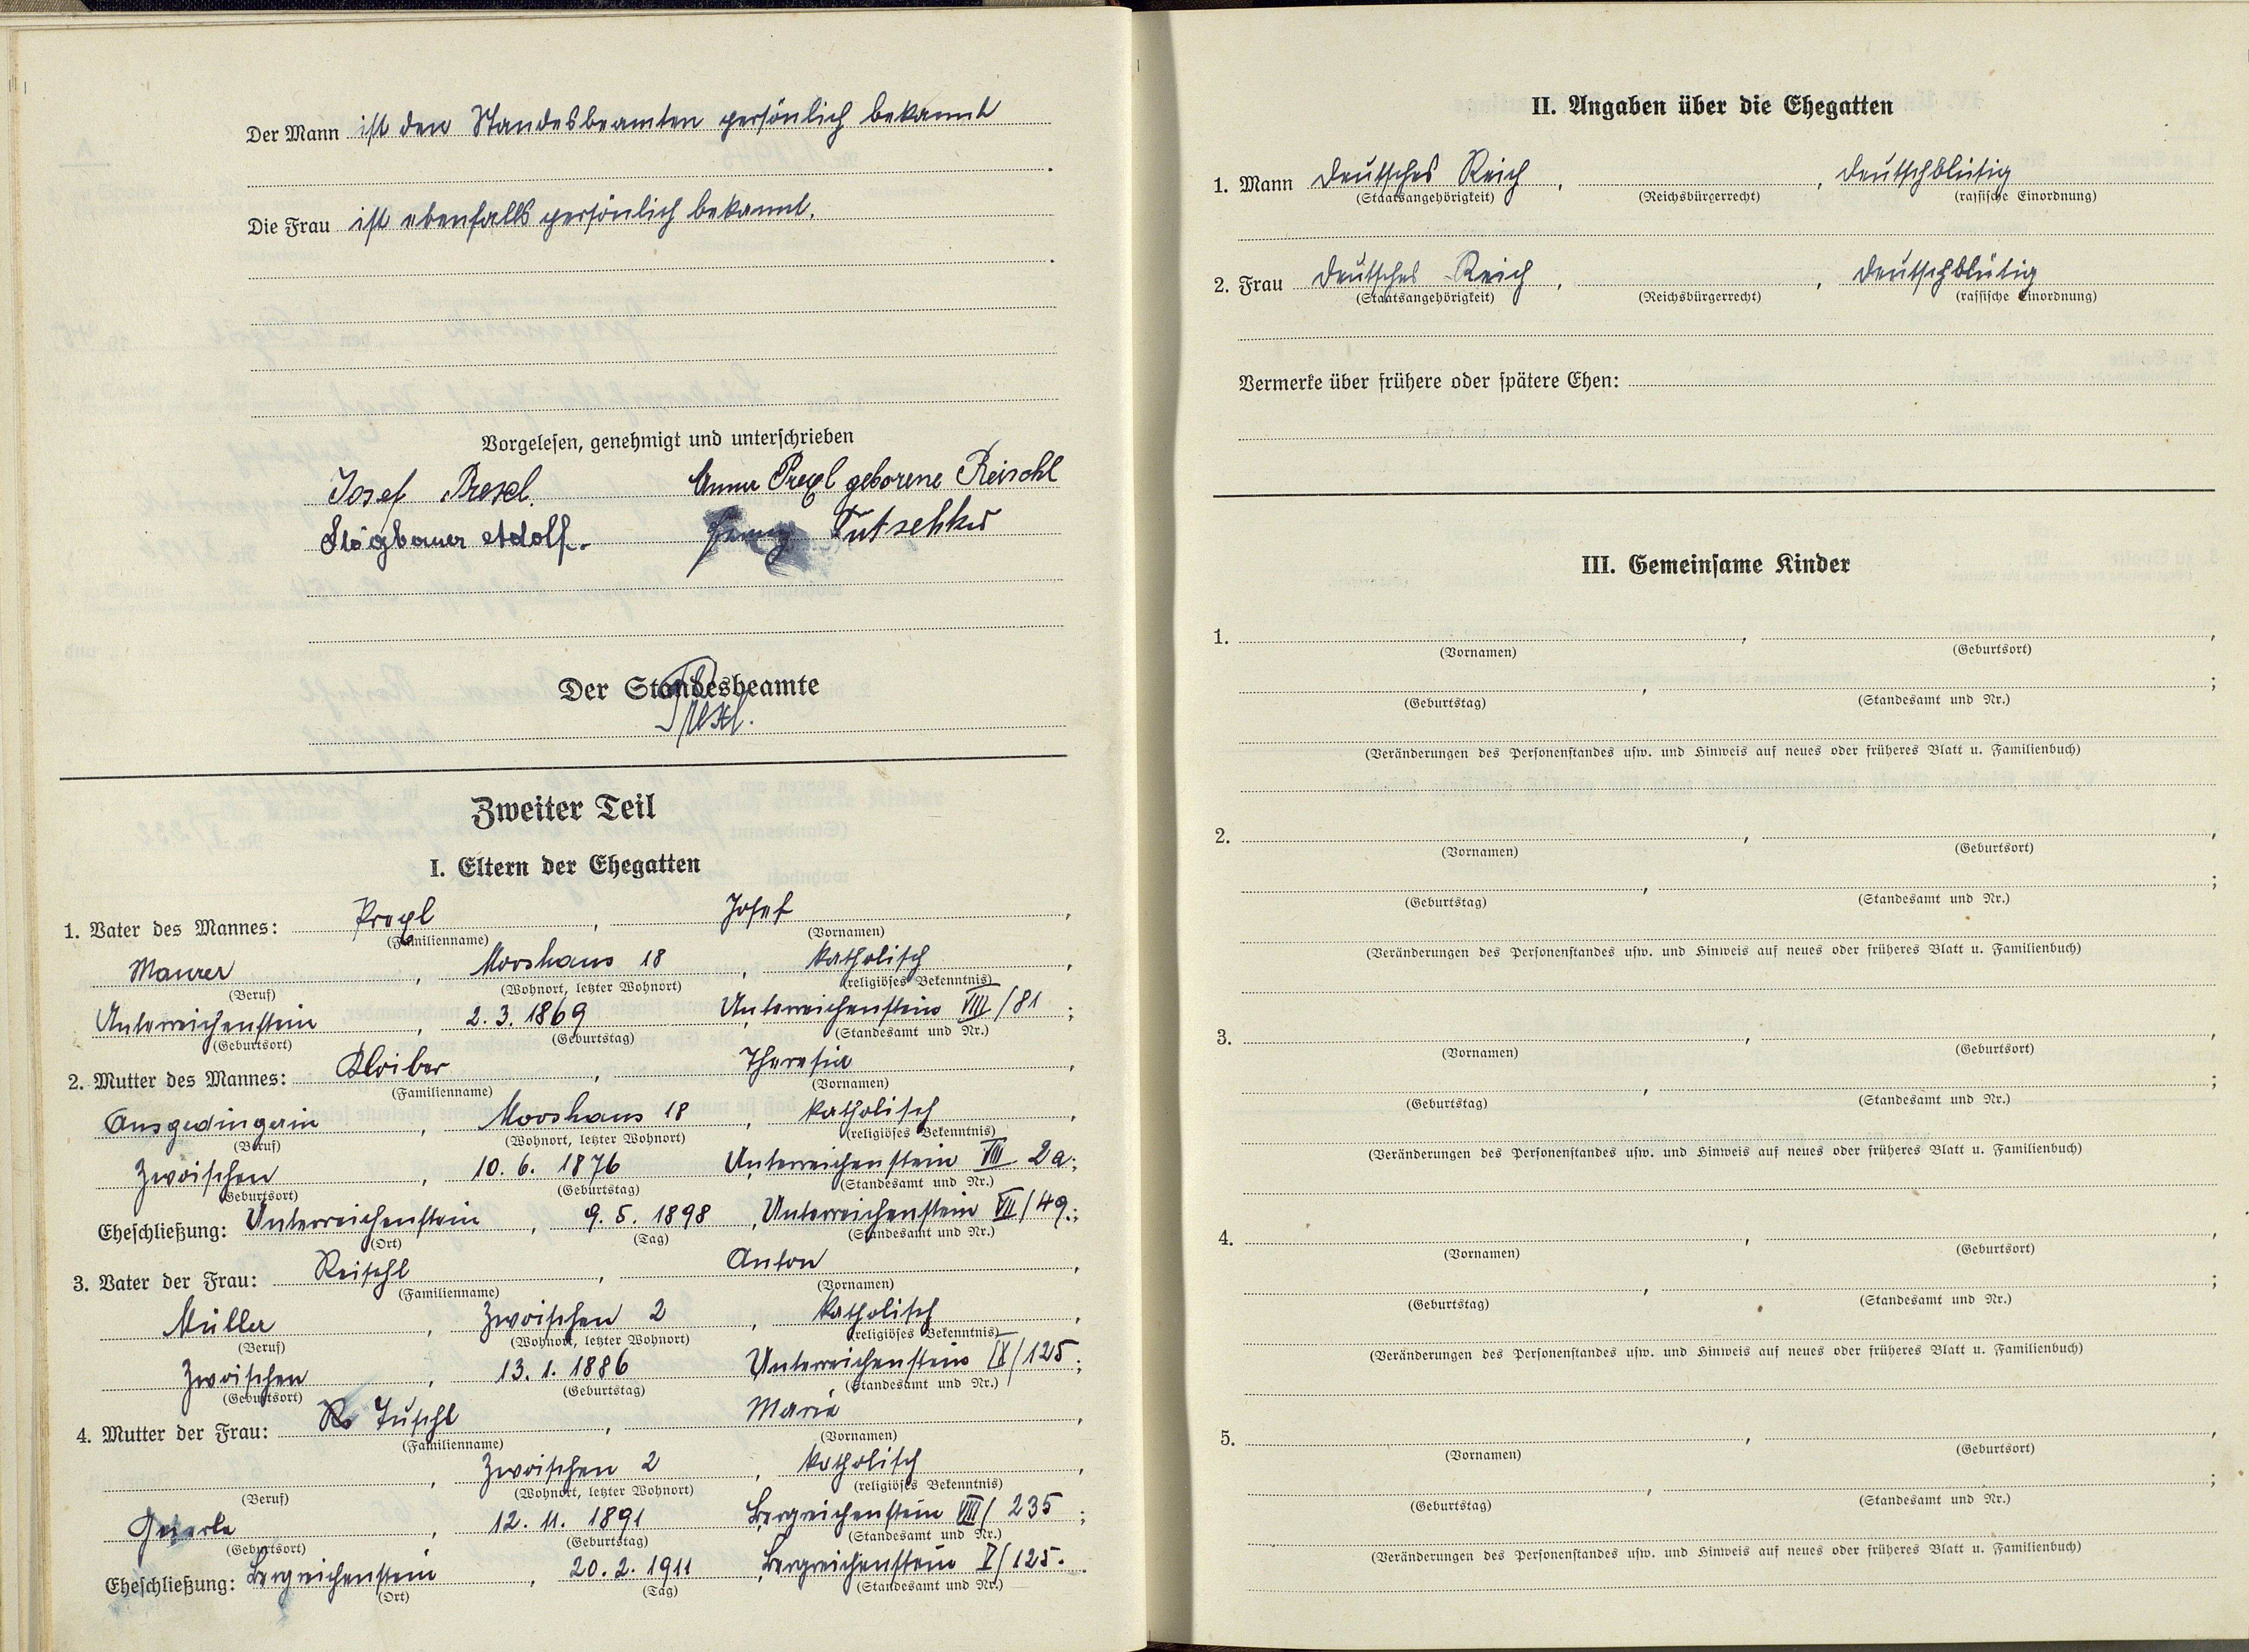 Der Mann ist den Standesbeamten persönlich bekannt
.
Die Frau ist ebenfalls persönlich bekannt.
.
Vorgelesen, genehmigt und unterschrieben
Josef Prexl. Anna Prexl geborene Reischl
Adolf. Tutschku
Der Standesbeamte
Prexl.
Zweiter Teil
I. Eltern der Ehegatten
1. Vater des Mannes: Prexl, Josef,
(Familienname) (Vornamen)
Maurer, Mooshaus 18, katholisch,
(Beruf) (Wohnort, letzter Wohnort) (religiöses Bekenntnis)
Unterreichenstein, 2. 3. 1869 Unterreichenstein VIII/81;
(Geburtsort) (Geburtstag) (Standesamt und Nr.)
2. Mutter des Mannes: Kloiber, Theresia,
(Familienname) (Vornamen)
Ausgedingerin, Mooshaus 18, katholisch,
(Beruf) (Wohnort, letzter Wohnort) (religiöses Bekenntnis)
Zwoischen, 10. 6. 1876 Unterreichenstein VIII 2a;
(Geburtsort) (Geburtstag) (Standesamt und Nr.)
Eheschließung: Unterreichenstein, 9. 5. 1898, Unterreichenstein VII/49.;
(Ort) (Tag) (Standesamt und Nr.)
3. Vater der Frau: Reischl, Anton,
(Familienname) (Vornamen)
Müller, Zwoischen 2, katholisch,
(Beruf) (Wohnort, letzter Wohnort) (religiöses Bekenntnis)
Zwoischen, 13. 1. 1886 Unterreichenstein IX/125;
(Geburtsort) (Geburtstag) (Standesamt und Nr.)
4. Mutter der Frau: Tuschl, Maria,
(Familienname) (Vornamen)
, Zwoischen 2, katholisch,
(Beruf) (Wohnort, letzter Wohnort) (religiöses Bekenntnis)
, 12. 11. 1891 Bergreichenstein VIII/235;
(Geburtsort) (Geburtstag) (Standesamt und Nr.)
Eheschließung: Bergreichenstein, 20. 2. 1911, Bergreichenstein X/125.
(Ort) (Tag) (Standesamt und Nr.)
II. Angaben über die Ehegatten
1. Mann deutsches Reich, , deutschblütig
(Staatsangehörigkeit) (Reichsbürgerrecht) (rassische Einordnung)
2. Frau deutsches Reich, , deutschblütig
(Staatsangehörigkeit) (Reichsbürgerrecht) (rassische Einordnung)
Vermerke über frühere oder spätere Ehen:
III. Gemeinsame Kinder
1. , ,
(Vornamen) (Geburtsort)
, ;
(Geburtstag) (Standesamt und Nr.)
(Veränderungen des Personenstandes usw. und Hinweis auf neues oder früheres Blatt u. Familienbuch)
2. , ,
(Vornamen) (Geburtsort)
, ;
(Geburtstag) (Standesamt und Nr.)
(Veränderungen des Personenstandes usw. und Hinweis auf neues oder früheres Blatt u. Familienbuch)
3. , ,
(Vornamen) (Geburtsort)
, ;
(Geburtstag) (Standesamt und Nr.)
(Veränderungen des Personenstandes usw. und Hinweis auf neues oder früheres Blatt u. Familienbuch)
4. , ,
(Vornamen) (Geburtsort)
, ;
(Geburtstag) (Standesamt und Nr.)
(Veränderungen des Personenstandes usw. und Hinweis auf neues oder früheres Blatt u. Familienbuch)
5. , ,
(Vornamen) (Geburtsort)
, ;
(Geburtstag) (Standesamt und Nr.)
(Veränderungen des Personenstandes usw. und Hinweis auf neues oder früheres Blatt u. Familienbuch)